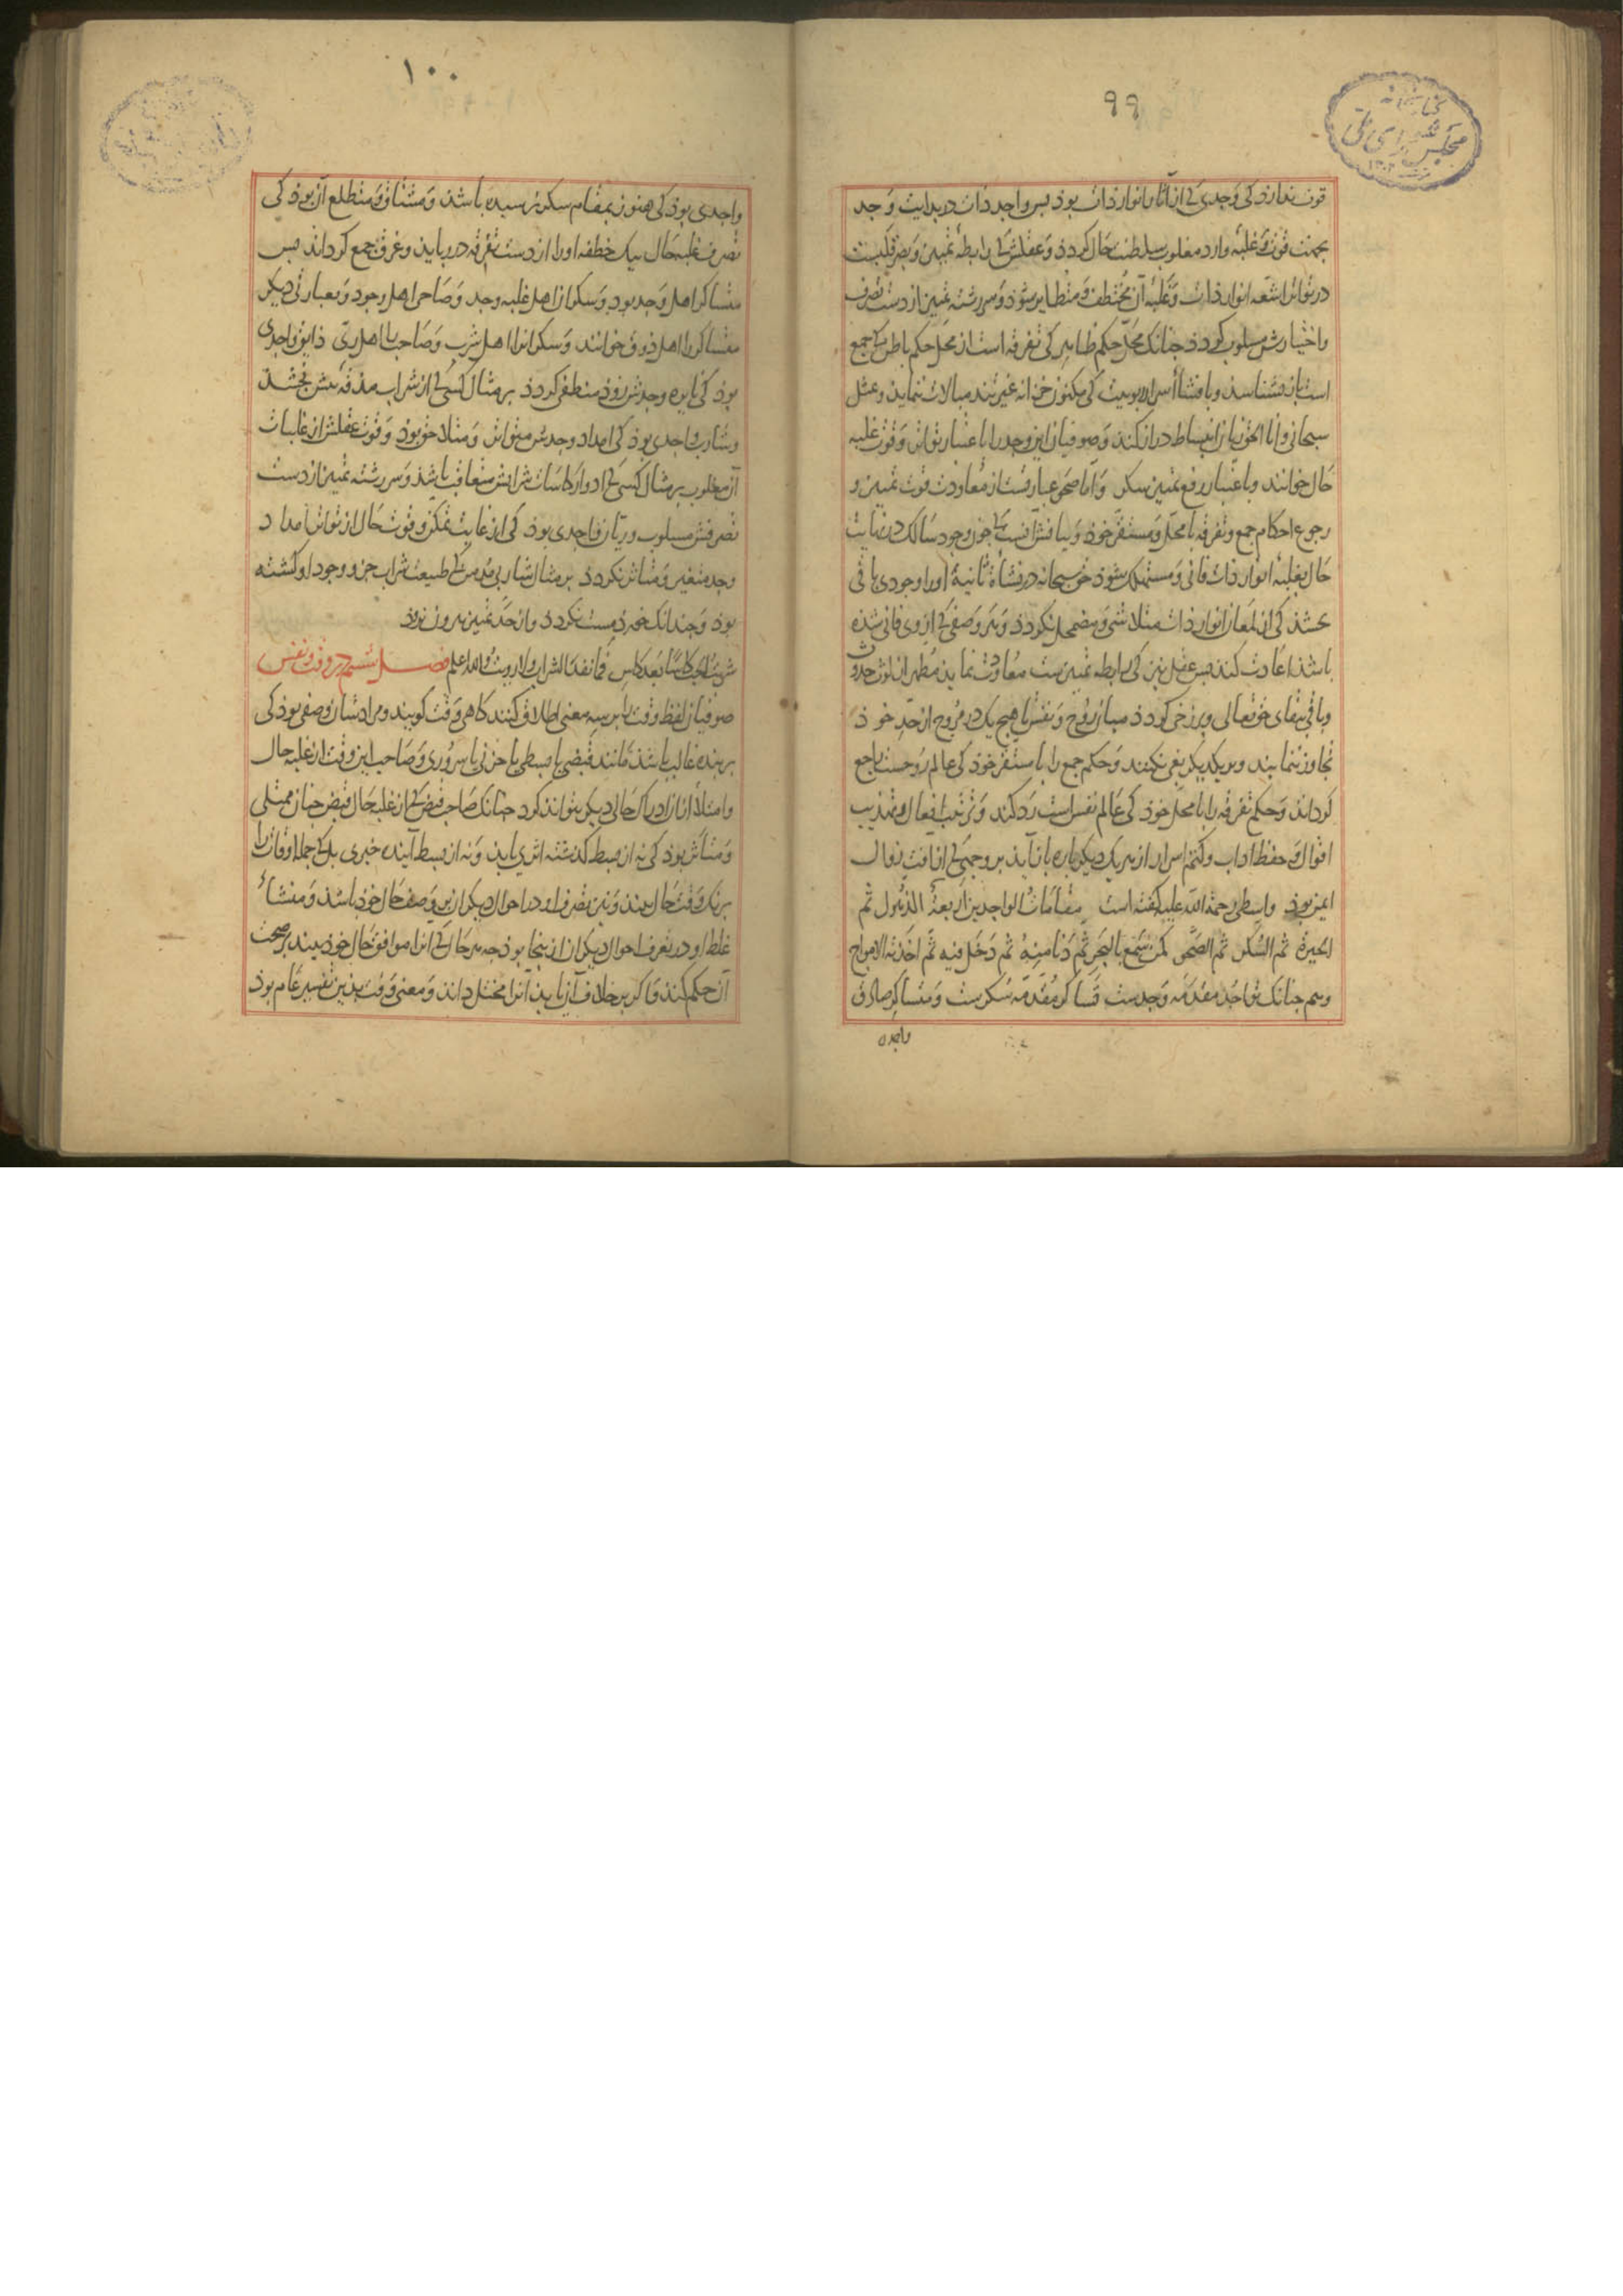 ۹۹
کتابخانه
مجلس شورای ملی
قوت ندارد کی وجدی کی از آثار انوار ذات بوذ بس واجد ذات در بدایت وجد
بجهت قوت و غلبهٔ وارد مغلوب سلطنت حال کردد و عقلش کی رابطهٔ تمییز و بصر قلبست
در تواتر اشعه انوار ذات و غلبهٔ آن مختطف و متطایر شوذ و سررشته تمییز از دست تصرف
و اختیارش مسلوب کردد جنانک محل حکم ظاهر کی تفرقه است از محل حکم باطن کی جمع
است باز نشناسد و بافشاء اسرار ربوبیت کی مکنون خزانه غیرتند مبالات ننماید و مثل
سبحانی و انا الحق باز انبساط دراز کند و صوفیان این وجد را باعتبار تواتر و قوت غلبه
حال خوانند و باعتبار رفع تمییز سکر و اما صحو عبارتست از معاودت قوت تمییز و
رجوع احکام جمع و تفرقه با محل و مستقر خوذ و بیانش آنست کی جون وجود سالک در نهایت
حال بغلبهٔ انوار ذات فانی و مستهلک شوذ حق سبحانه در نشأة ثانیة او را وجودی باقی
بخشذ کی از لمعان انوار ذات متلاشی و مضمحل نکردد و هر وصفی کی از وی فانی شده
باشذ اعادت کند بس عقل نیز کی رابطه تمییزست معاودت نماید مطهر از لوث حدوث
و باقی ببقای حق تعالی و برزخی کردد میان روح و نفس تا هیج یک در مروج از حد خوذ
تجاوز ننمایند و بر یکدیکر بغی نکنند و حکم جمع را با مستقر خوذ کی عالم روحست راجع
کرداند و حکم تفرقه را با محل خوذ کی عالم نفس است رد کند و ترتیب افعال و تهذیب
اقوال و حفظ آداب و کتم اسرار از هر یک دیکر باره باز آید بر وجهی کی از آفت زوال
ایمن بوذ واسطی رحمة الله علیه کفته است مقامات الواجدین اربعة الذهول ثم
الحیرة ثم السکر ثم الصحو کمن سمع بالبحر ثم دنا منه ثم دخل فیه ثم اخذته الامواج
و هم جنانک تواجد مقدمه وجدست تساکر مقدمه سکرست و متساکر صادق
واجدی
۱۰۰
واجدی بوذ کی هنوز بمقام سکر نرسیده باشد و مشتاق و متطلع آن بوذ کی
تصرف غلبه حال بیک خطفه او را از دست تفرقه در رباید و غرق جمع کرداند بس
متساکر اهل وجد بود و سکران اهل غلبه وجد و صاحی اهل وجود و بعبارتی دیکر
متساکر را اهل ذوق خوانند و سکران را اهل شرب و صاحی را اهل ری ذایق واجدی
بوذ کی نایره وجدش زوذ منطفی کردد بر مثال کسی کی از شراب مذقهٔ بیش نجشد
و شارب واجدی بوذ کی امداد وجدش متواتر و متلاحق بوذ و قوت عقلش از غلبات
آن مغلوب بر مثال کسی کی ادوار کاسات شرابش متعاقب باشذ و سررشته تمییز از دست
تصرفش مسلوب و ریان واجدی بوذ کی از غایت تمکن و قوت حال از تواتر امداد
وجد متغیر و متأثر نکردد بر مثال شاربی مدمن کی طبیعت شراب جزو وجود او کشته
بوذ و جندانک خورد مست نکردد و از حد تمییز بیرون نرود
شربت الحب کأسا بعد کأس فما نفد الشراب ولا رویت والله اعلم فصل ششم در وقت و نفس
صوفیان لفظ وقت را بر سه معنی اطلاق کنند کاهی وقت کویند و مرادشان وصفی بوذ کی
بر بنده غالب باشذ مانند قبضی یا بسطی یا حزنی یا سروری و صاحب این وقت از غلبه حال
و امتلاء از آن ادراک حالی دیکر نتواند کرد جنانک صاحب قبض کی از غلبه حال قبض جنان ممتلی
و متأثر بوذ کی نه از بسط کذشته اثری یابد و نه از بسط آینده خبری بلک جمله اوقات را
برنک وقت حال بیند و نیز تصرف او در احوال دیکران بر وصف حال خوذ باشذ و منشاء
غلط او در تعرف احوال دیکران از ینجا بوذ جه هر حال کی آنرا موافق حال خوذ بیند بر صحت
آن حکم کند و اکر بر خلاف آن یابد آنرا مختل داند و معنی وقت بذین تفسیر عام بوذ